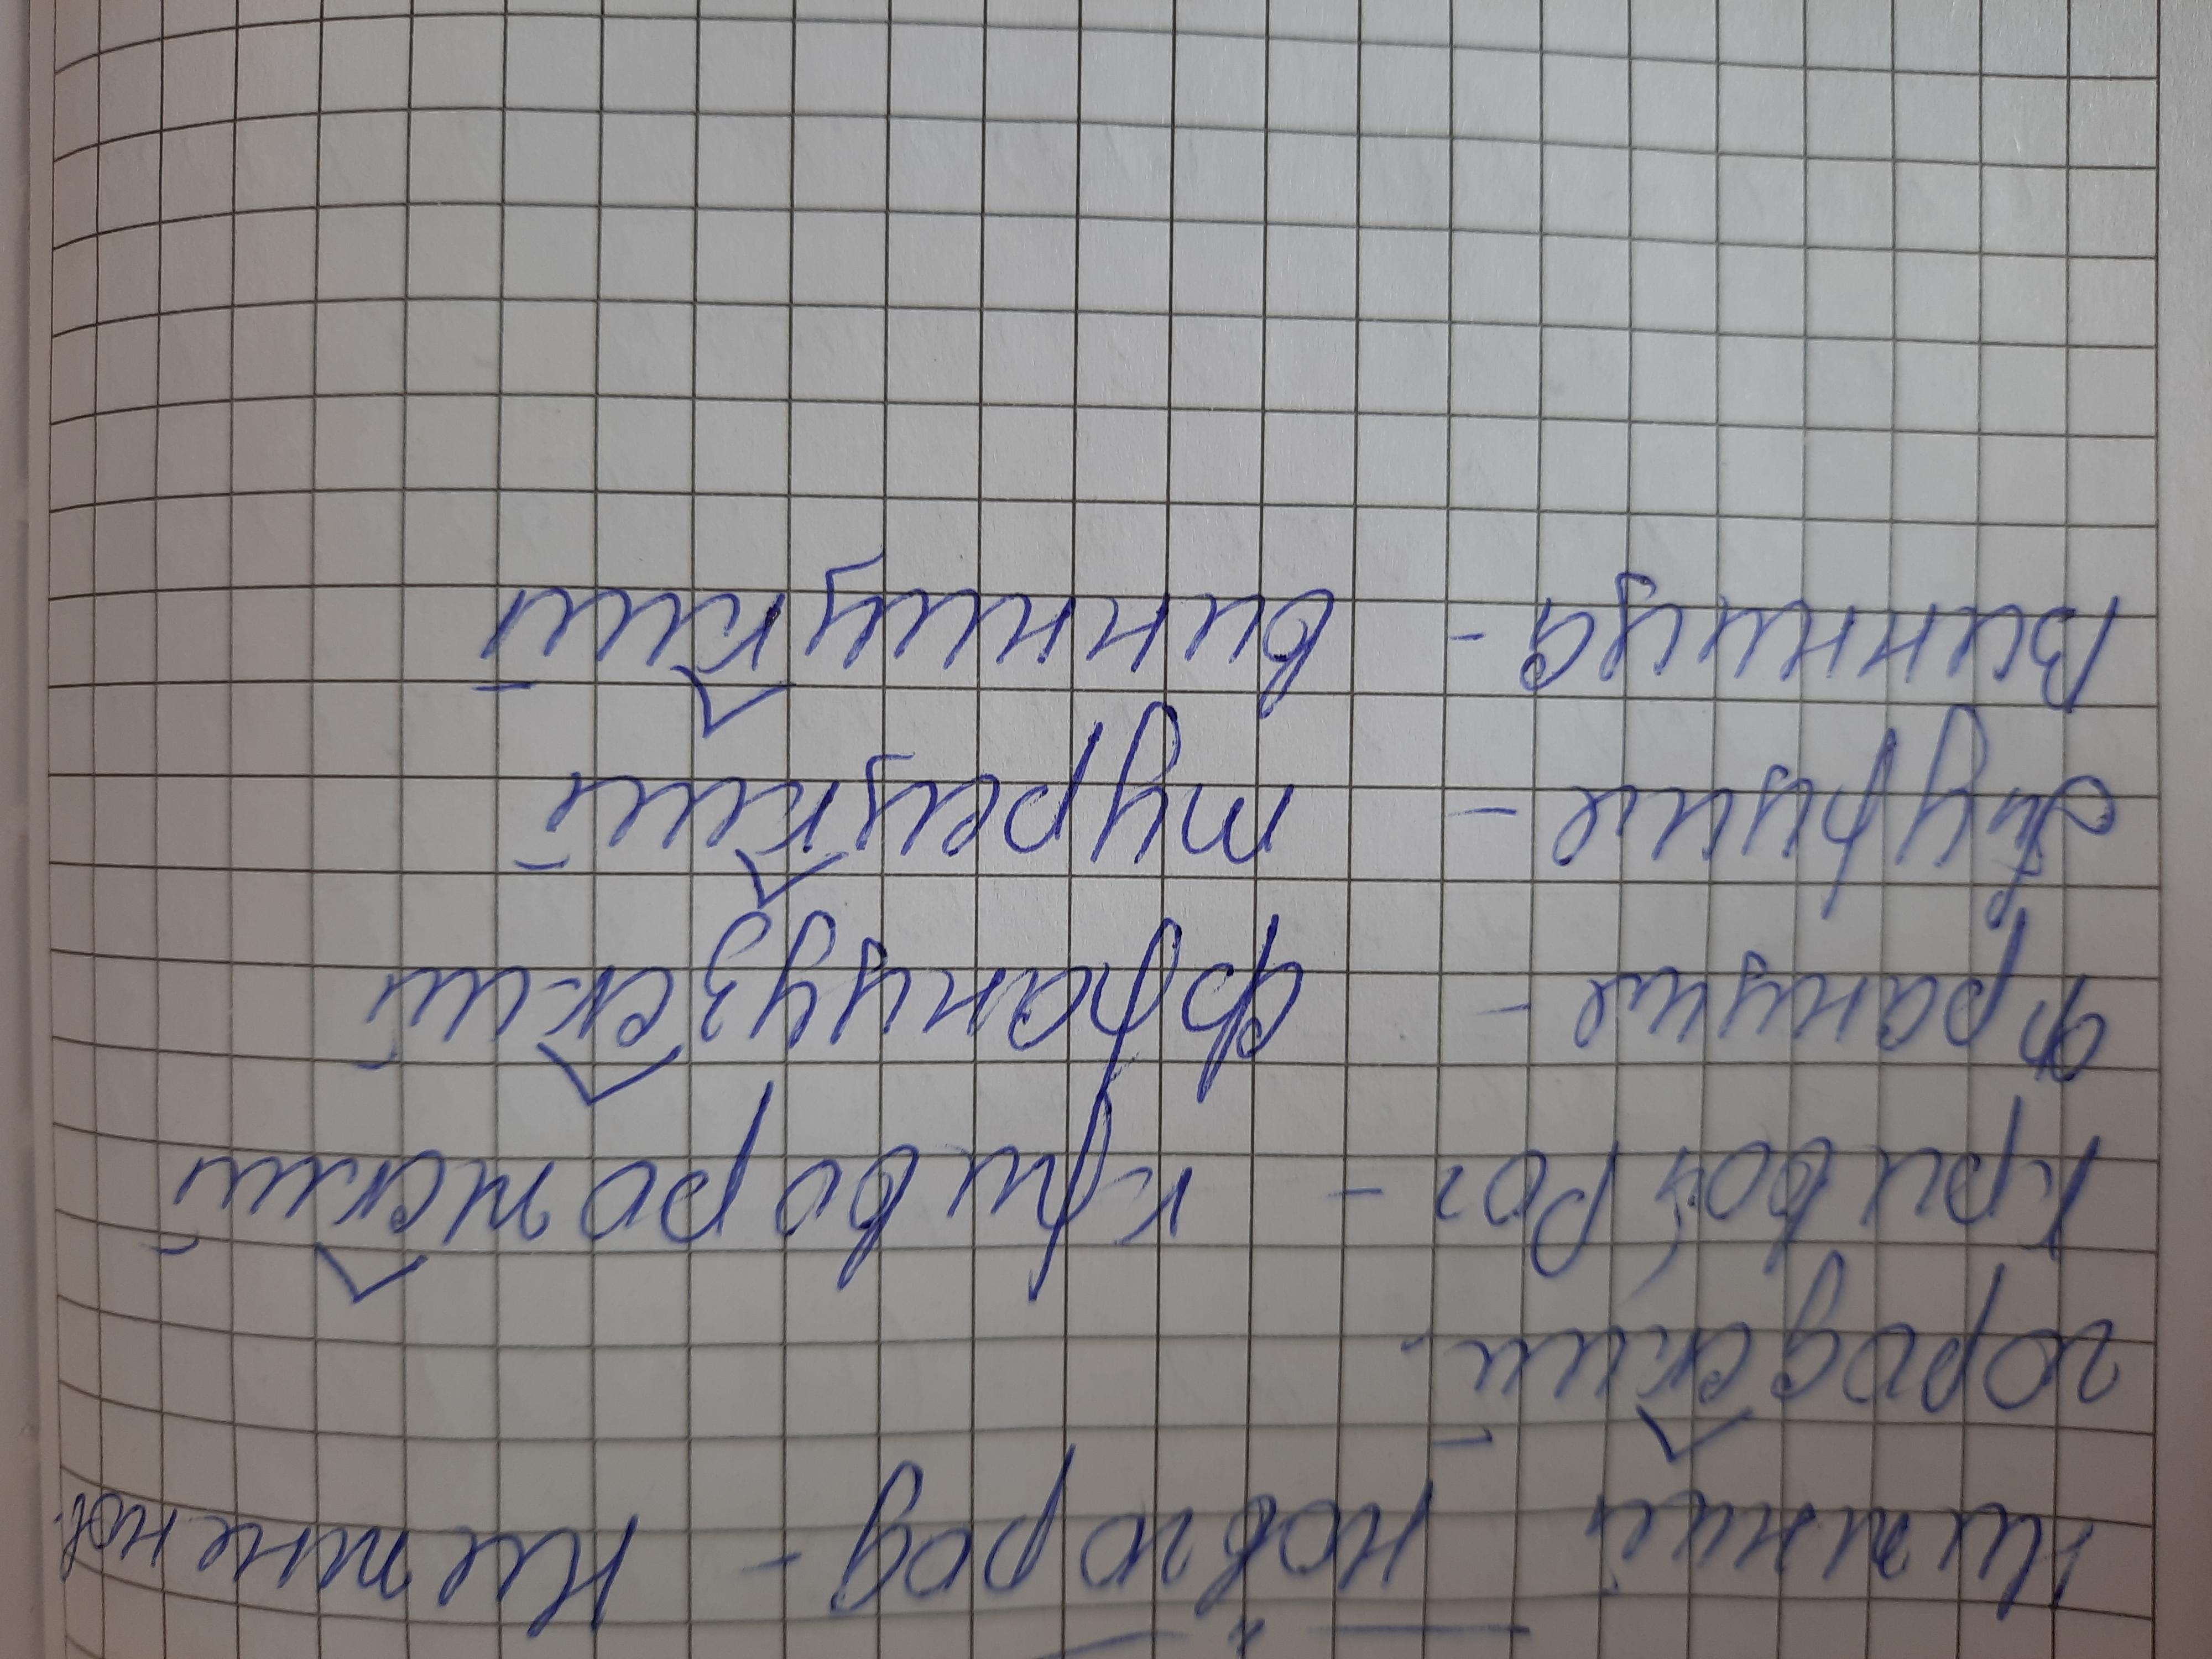 Нижний Новгород - Нижненов
городский.
Кривой Рог - криворожский
Франция - французский
Турция - турецкий
Винница - винницкий